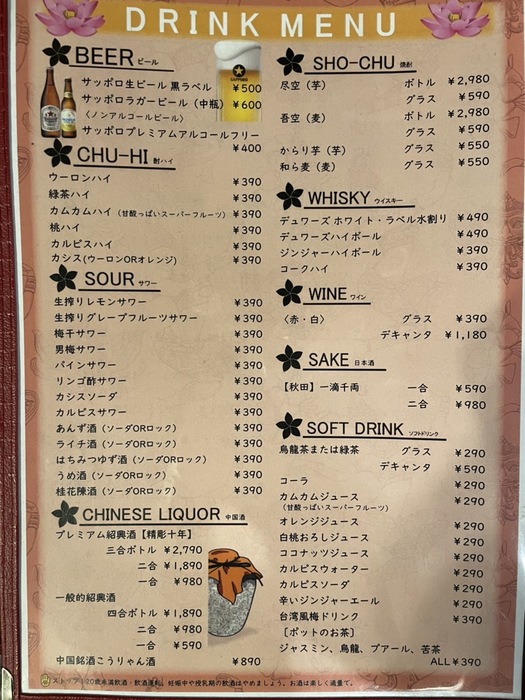 DRINK MENU
BEER ビール
サッポロ生ビール 黒ラベル ¥500
サッポロラガービール（中瓶） ¥600
〈ノンアルコールビール〉
サッポロプレミアムアルコールフリー
¥400
CHU-HI 酎ハイ
ウーロンハイ ¥390
緑茶ハイ ¥390
カムカムハイ（甘酸っぱいスーパーフルーツ） ¥390
桃ハイ ¥390
カルピスハイ ¥390
カシス(ウーロンORオレンジ) ¥390
SOUR サワー
生搾りレモンサワー ¥390
生搾りグレープフルーツサワー ¥390
梅干サワー ¥390
男梅サワー ¥390
パインサワー ¥390
リンゴ酢サワー ¥390
カシスソーダ ¥390
カルピスサワー ¥390
あんず酒（ソーダORロック） ¥390
ライチ酒（ソーダORロック） ¥390
はちみつゆず酒（ソーダORロック） ¥390
うめ酒（ソーダORロック） ¥390
桂花陳酒（ソーダORロック） ¥390
CHINESE LIQUOR 中国酒
プレミアム紹興酒【精彫十年】
三合ボトル ¥2,790
二合 ¥1,890
一合 ¥980
一般的紹興酒
四合ボトル ¥1,890
二合 ¥980
一合 ¥590
中国銘酒こうりゃん酒 ¥890
SHO-CHU 焼酎
尽空（芋） ボトル ¥2,980
グラス ¥590
吾空（麦） ボトル ¥2,980
グラス ¥590
からり芋（芋） グラス ¥550
和ら麦（麦） グラス ¥550
WHISKY ウイスキー
デュワーズ ホワイト・ラベル水割り ¥490
デュワーズハイボール ¥490
ジンジャーハイボール ¥390
コークハイ ¥390
WINE ワイン
〈赤・白〉 グラス ¥390
デキャンタ ¥1,180
SAKE 日本酒
【秋田】一滴千両 一合 ¥590
二合 ¥980
SOFT DRINK ソフトドリンク
烏龍茶または緑茶 グラス ¥290
デキャンタ ¥590
コーラ ¥290
カムカムジュース ¥290
（甘酸っぱいスーパーフルーツ）
オレンジジュース ¥290
白桃おろしジュース ¥290
ココナッツジュース ¥290
カルピスウォーター ¥290
カルピスソーダ ¥290
辛いジンジャーエール ¥290
台湾風梅ドリンク ¥390
【ポットのお茶】
ジャスミン、烏龍、プアール、苦茶
ALL¥390
ストップ！20歳未満飲酒・飲酒運転。妊娠中や授乳期の飲酒はやめましょう。お酒は楽しく適量で。